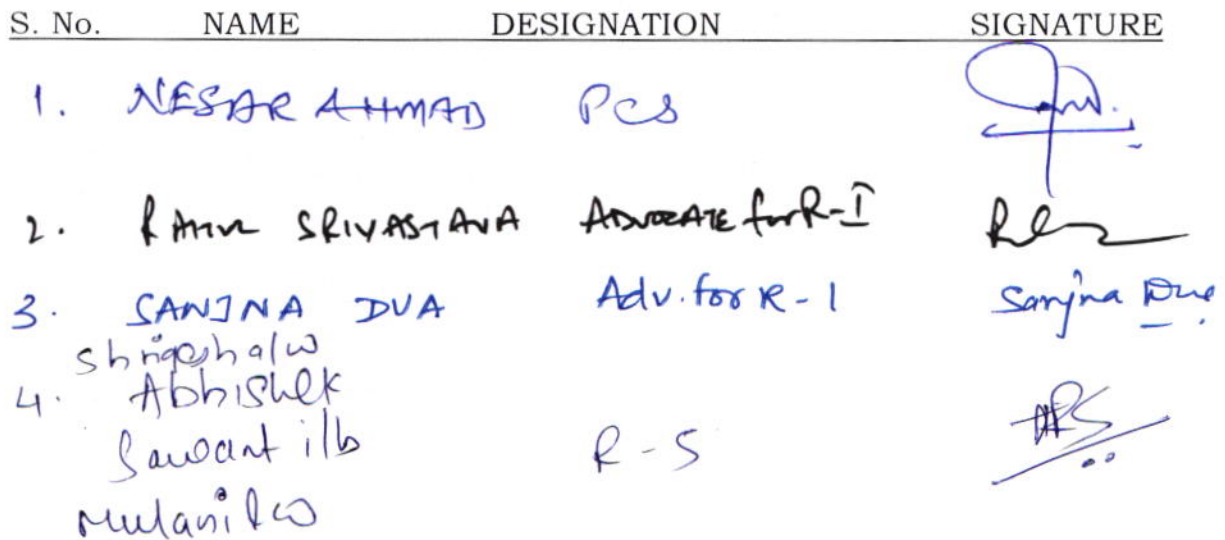 S. No. NAME DESIGNATION SIGNATURE
1. NESAR AHMAD PCS
2. SRIVASTAVA ADVOCATE for R-I
3. SANJNA DUA Adv. for R-1 Sanjna Dua
4. Abhishek
Sawant i/b R-5